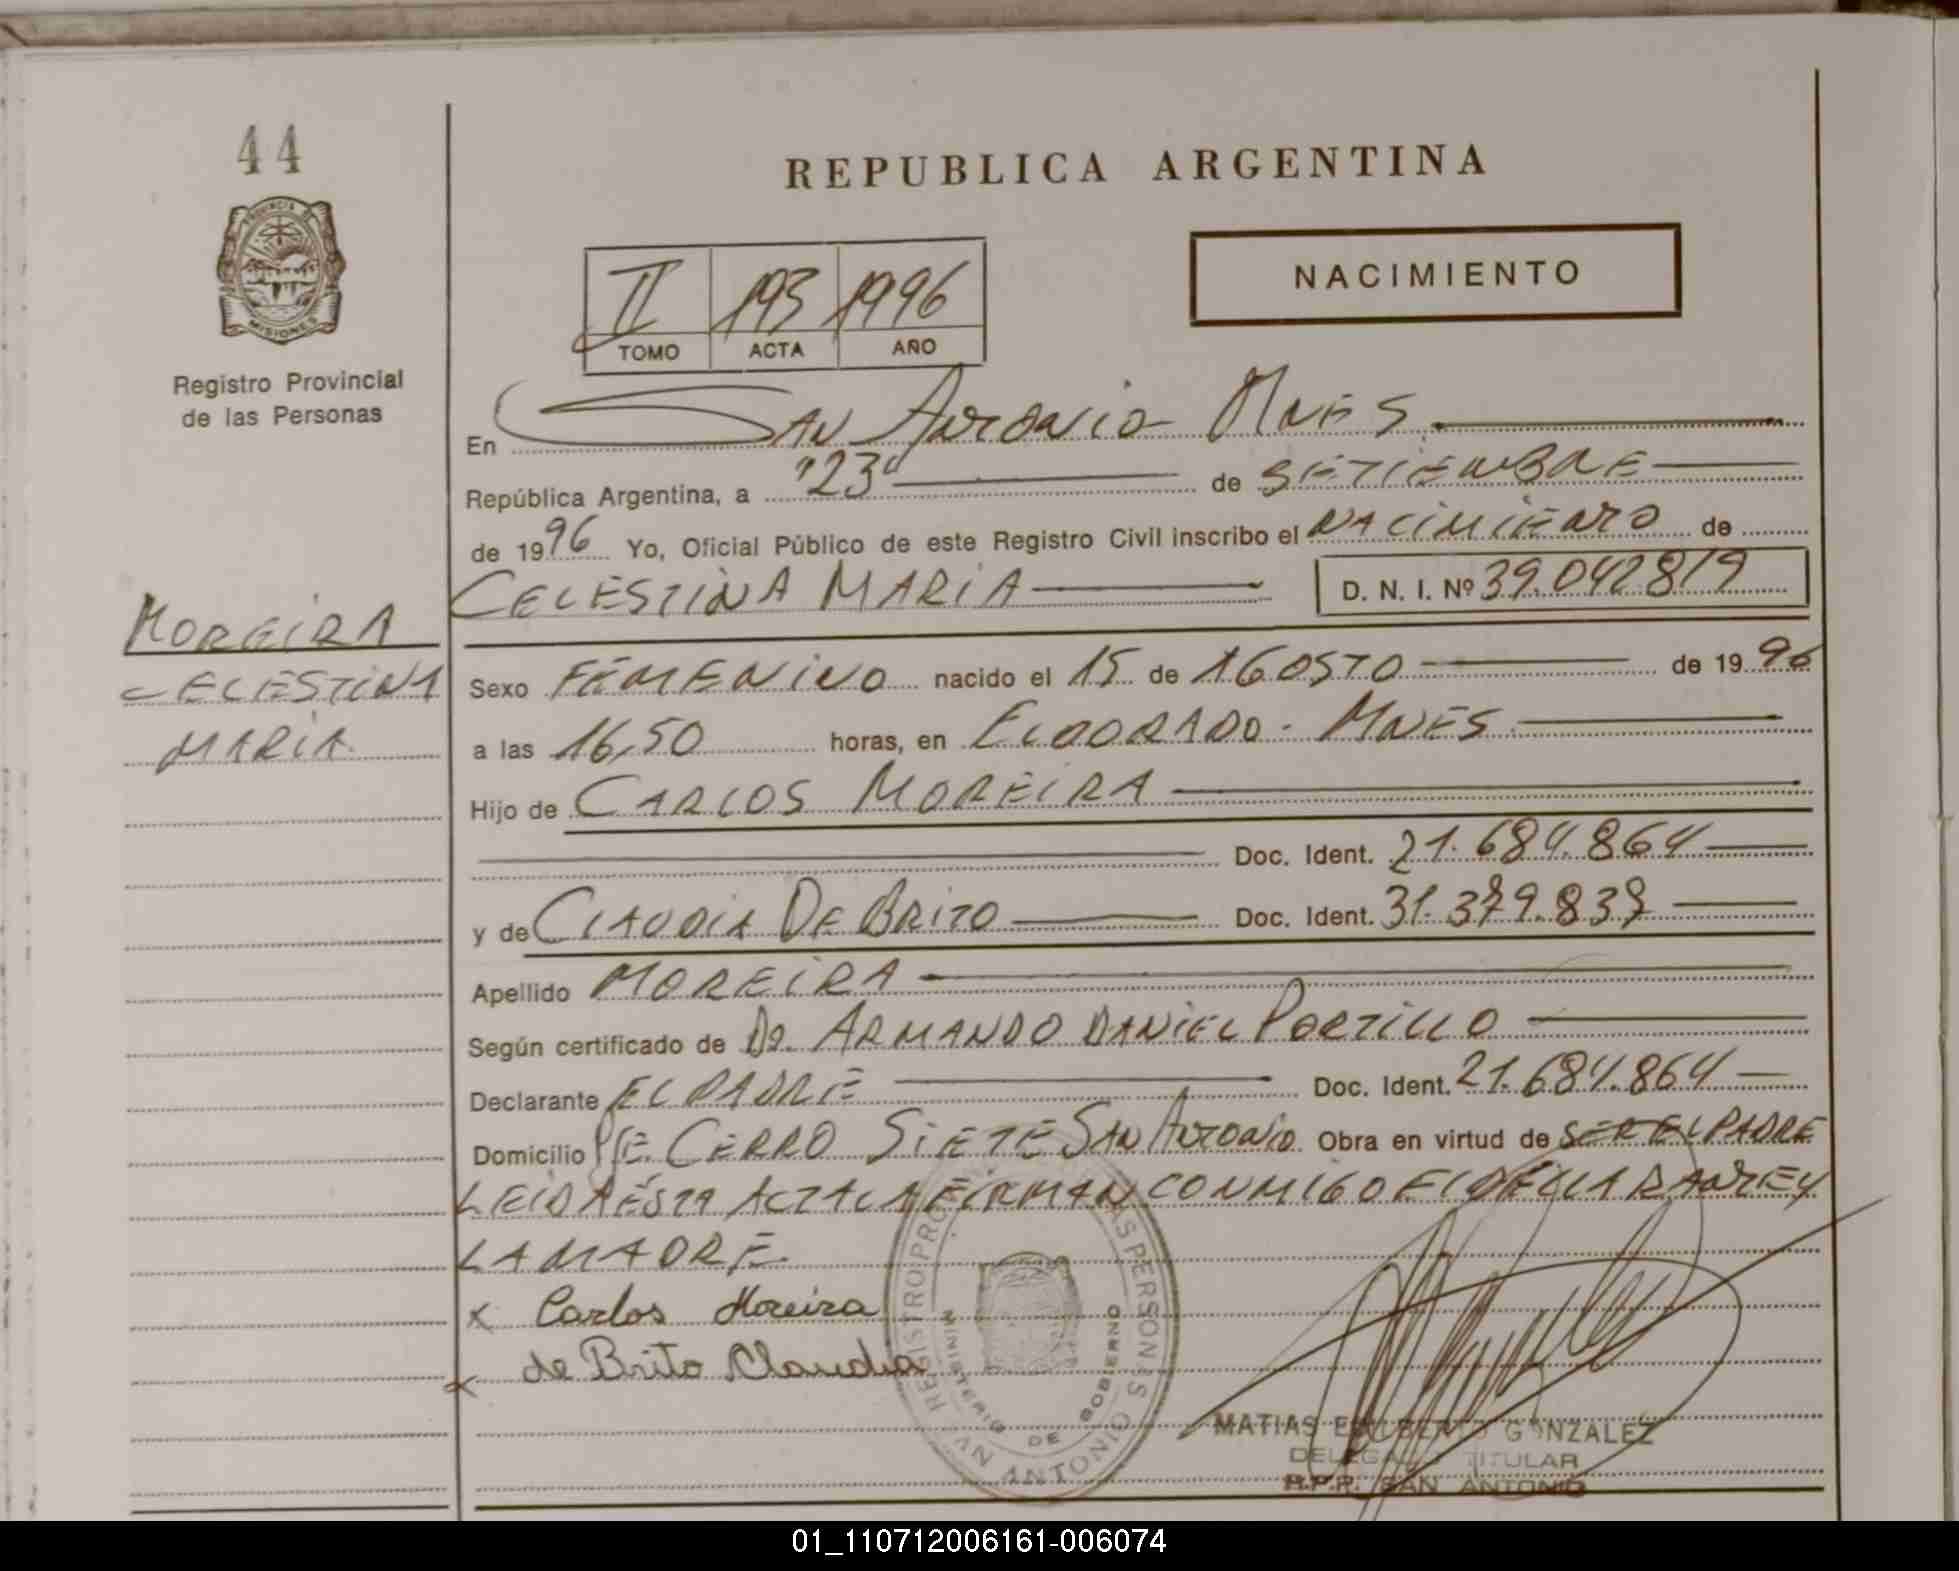 44
REPUBLICA ARGENTINA
PROVINCIA DE
MISIONES
NACIMIENTO
II 193 1996
TOMO ACTA AÑO
Registro Provincial
de las Personas
En SAN ANTONIO MNES.
República Argentina, a "23" de SETIEMBRE
de 1996 Yo, Oficial Público de este Registro Civil inscribo el NACIMIENTO de
CELESTINA MARIA D. N. I. Nº 39.042819
MOREIRA
CELESTINA
MARIA
Sexo FEMENINO nacido el 15 de AGOSTO de 1996
a las 16,50 horas, en ELDORADO - MNES
Hijo de CARLOS MOREIRA
Doc. Ident. 21.684.864
y de CLAUDIA DE BRITO Doc. Ident.
Apellido MOREIRA
Según certificado de DR. ARMANDO DANIEL PORTILLO
Declarante EL PADRE Doc. Ident. 21.684.864
Domicilio PJE. CERRO SIETE SAN ANTONIO Obra en virtud de SER EL PADRE
LEIDA ÉSTA ACTA LA FIRMAN CONMIGO EL PADRE Y
LA MADRE.
x Carlos Moreira
x de Brito Claudia
REGISTRO PROVINCIAL DE LAS PERSONAS
MINISTERIO DE GOBIERNO
SAN ANTONIO
MATIAS GONZALEZ
DELEGADO TITULAR
R.P.P. SAN ANTONIO
01_110712006161-006074